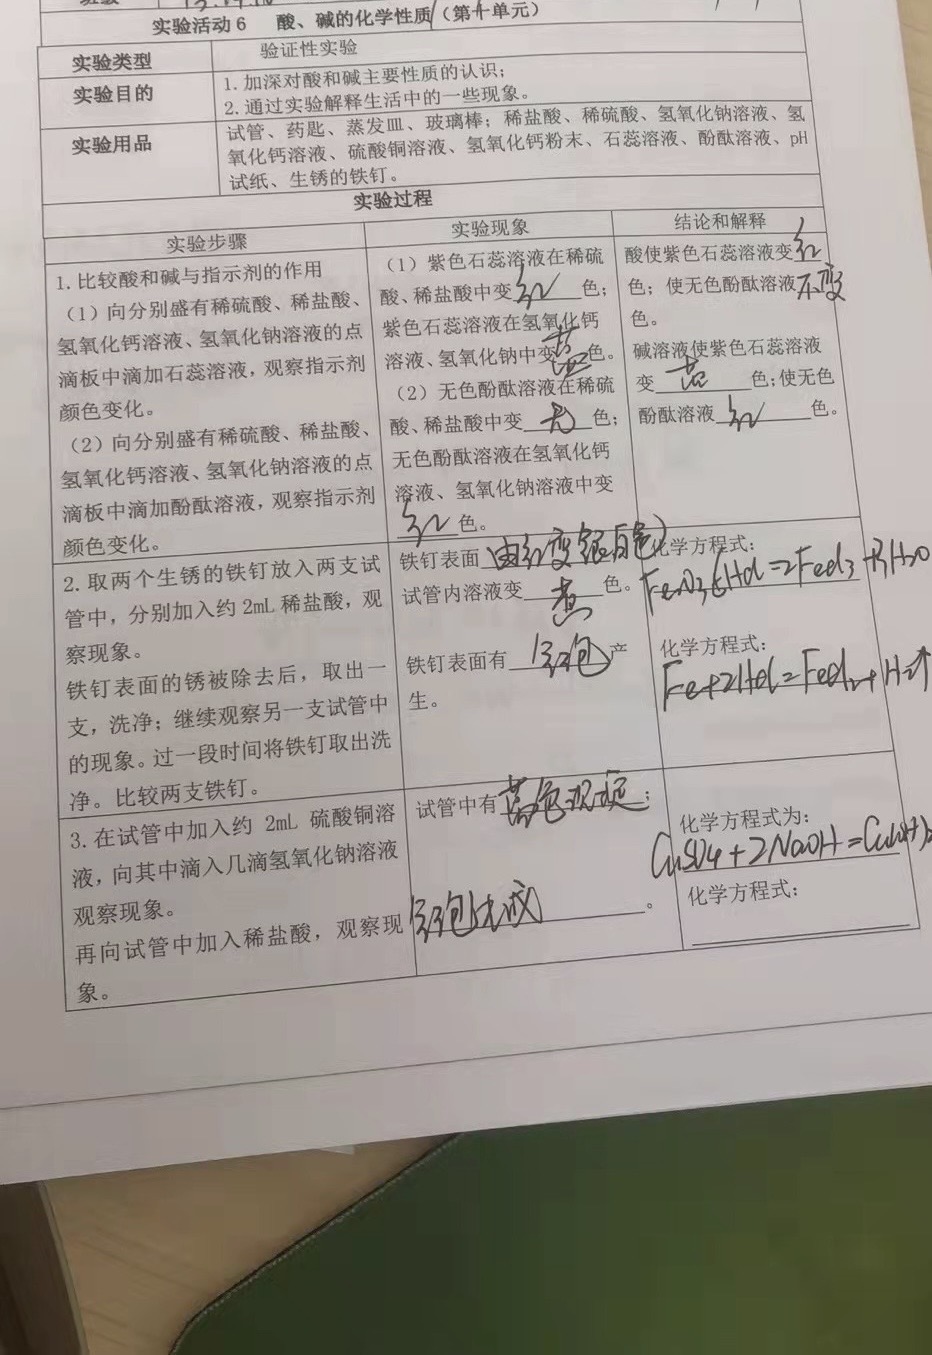 实验活动6 酸、碱的化学性质(第十单元)
实验类型 验证性实验
实验目的 1.加深对酸和碱主要性质的认识;
2.通过实验解释生活中的一些现象。
实验用品 试管、药匙、蒸发皿、玻璃棒;稀盐酸、稀硫酸、氢氧化钠溶液、氢
氧化钙溶液、硫酸铜溶液、氢氧化钙粉末、石蕊溶液、酚酞溶液、pH
试纸、生锈的铁钉。
实验过程
实验步骤 实验现象 结论和解释
1.比较酸和碱与指示剂的作用
(1)向分别盛有稀硫酸、稀盐酸、
氢氧化钙溶液、氢氧化钠溶液的点
滴板中滴加石蕊溶液,观察指示剂
颜色变化。
(2)向分别盛有稀硫酸、稀盐酸、
氢氧化钙溶液、氢氧化钠溶液的点
滴板中滴加酚酞溶液,观察指示剂
颜色变化。
(1)紫色石蕊溶液在稀硫
酸、稀盐酸中变红色;
紫色石蕊溶液在氢氧化钙
溶液、氢氧化钠中变蓝色。
(2)无色酚酞溶液在稀硫
酸、稀盐酸中变无色;
无色酚酞溶液在氢氧化钙
溶液、氢氧化钠溶液中变
红色。
酸使紫色石蕊溶液变红
色;使无色酚酞溶液不变
色。
碱溶液使紫色石蕊溶液
变蓝色;使无色
酚酞溶液红色。
2.取两个生锈的铁钉放入两支试
管中,分别加入约2mL稀盐酸,观
察现象。
铁钉表面的锈被除去后,取出一
支,洗净;继续观察另一支试管中
的现象。过一段时间将铁钉取出洗
净。比较两支铁钉。
铁钉表面由红变银白色
试管内溶液变黄色。
铁钉表面有气泡产
生。
化学方程式:
Fe₂O₃+6HCl=2FeCl₃+3H₂O
化学方程式:
Fe+2HCl=FeCl₂+H₂↑
3.在试管中加入约 2mL 硫酸铜溶
液,向其中滴入几滴氢氧化钠溶液
观察现象。
再向试管中加入稀盐酸,观察现
象。
试管中有蓝色沉淀;
。
化学方程式为:
CuSO₄+2NaOH=Cu(OH)₂
化学方程式: